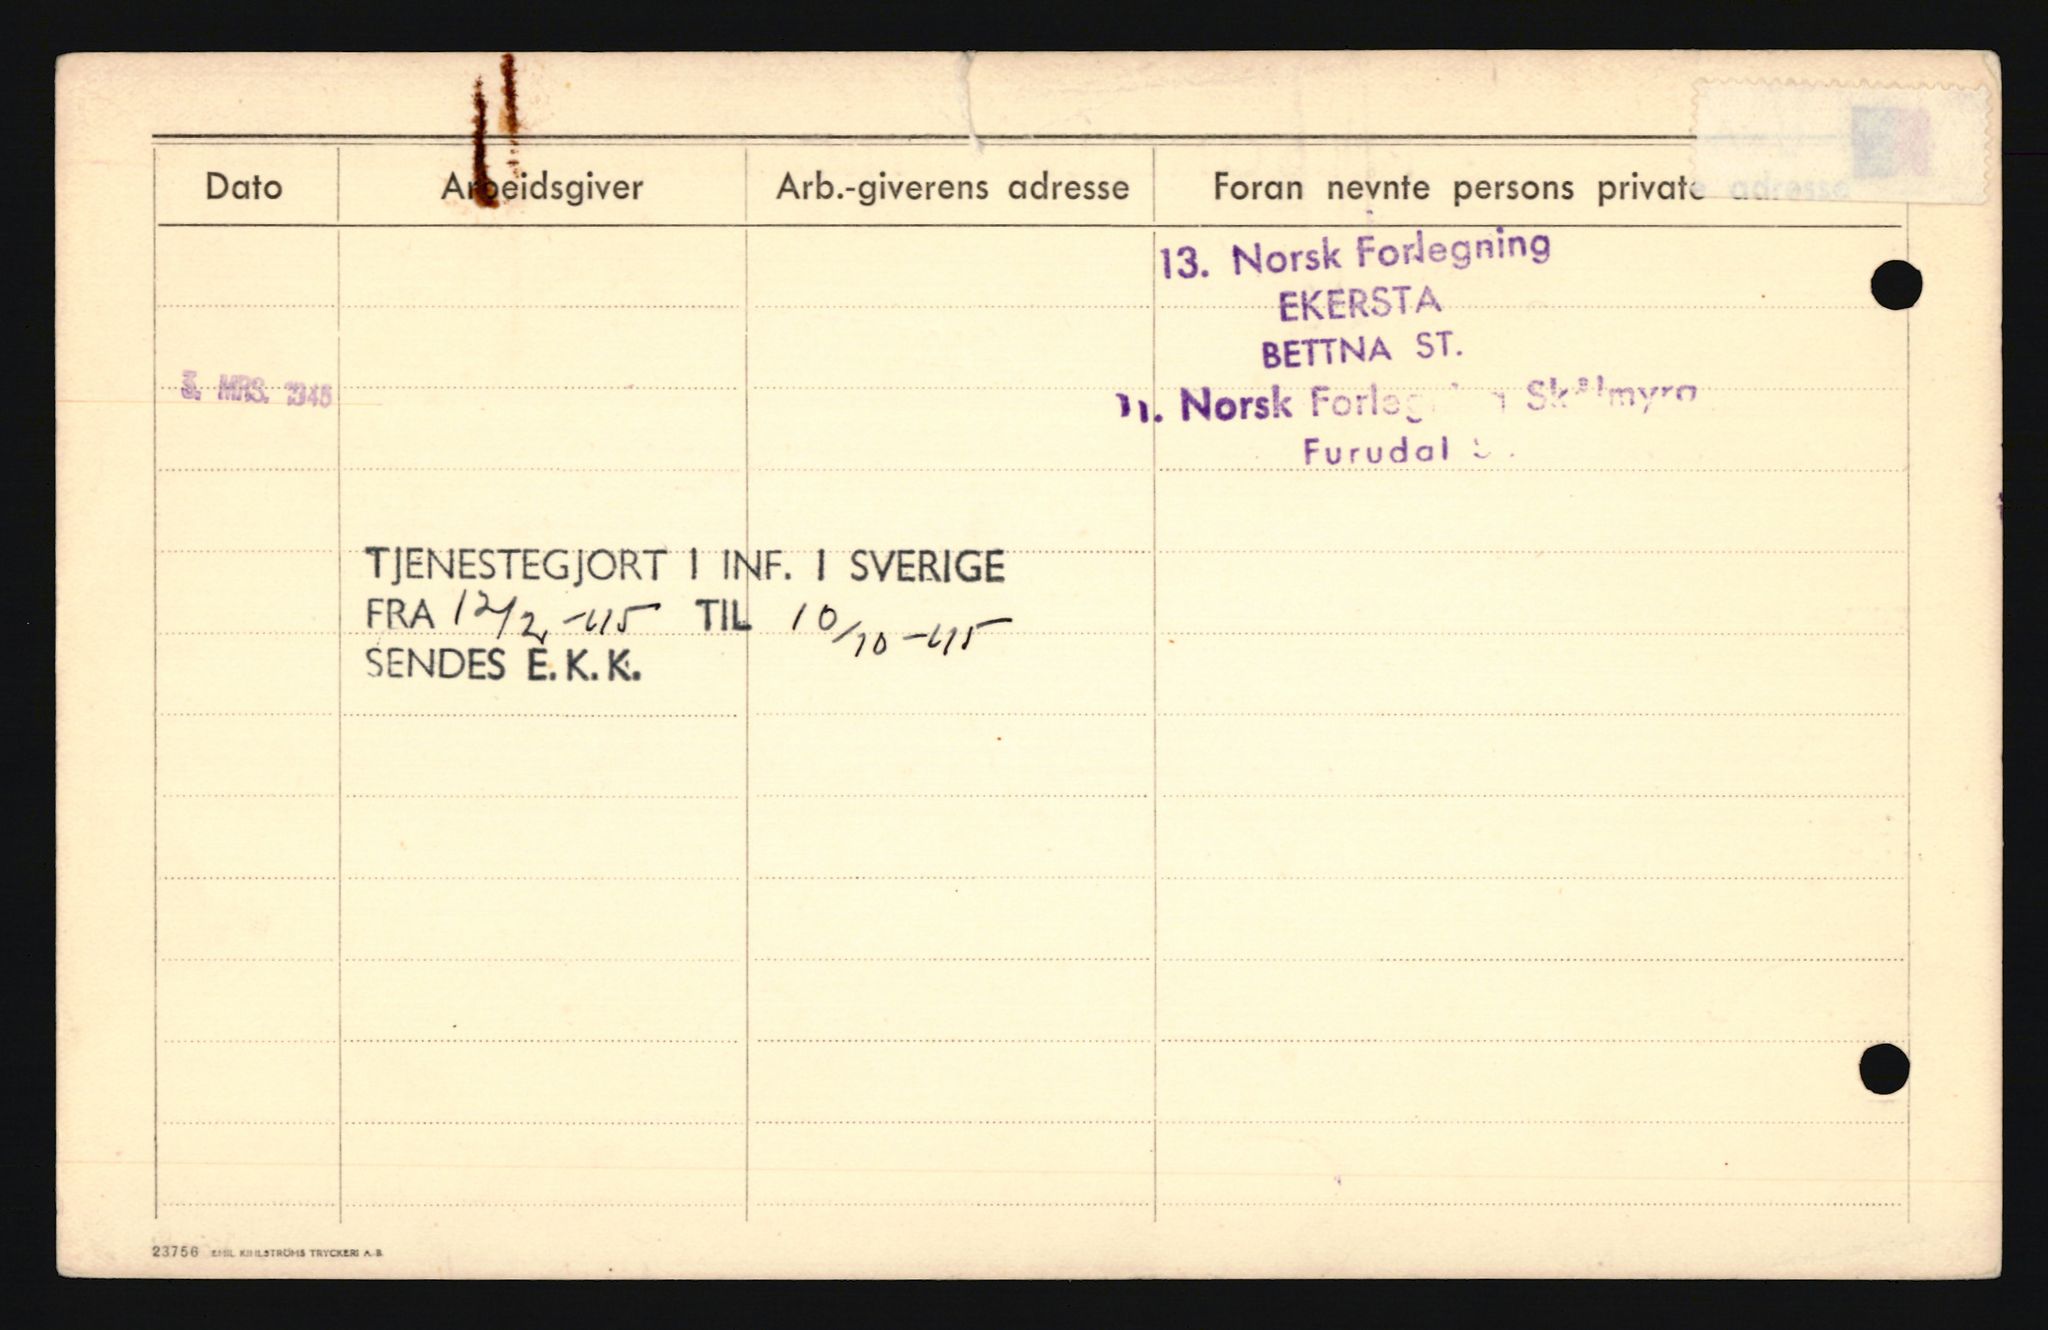 Dato Arbeidsgiver Arb.-giverens adresse Foran nevnte persons private adresse
13. Norsk Forlegning
EKERSTA
BETTNA ST.
3. MRS. 1945 11. Norsk Forlegning Skålmyra
Furudal
TJENESTEGJORT I INF. I SVERIGE
FRA 12/2 -45 TIL 10/10-45
SENDES E.K.K.
23756 EMIL KIHLSTRÖMS TRYCKERI A.-B.